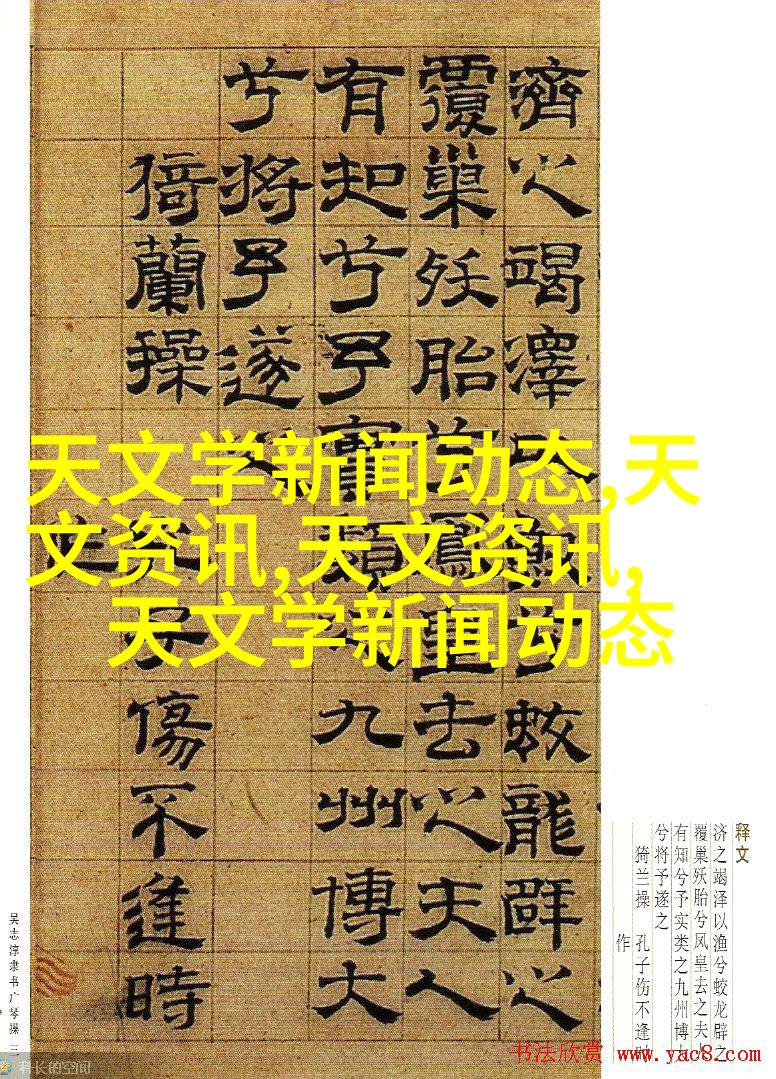 天文学新闻动态,天
文资讯,天文资讯,
天文学新闻动态
濟之竭澤漁兮蛟龍辟之
覆巢殀胎兮鳳皇去之夫人
有知兮予實類之九州博大
兮將予遂之
猗蘭操 孔子傷不逢時
作
释文
济之竭泽以渔兮蛟龙辟之
覆巢殀胎兮凤皇去之夫
有知兮予实类之九州博
兮将予遂之
猗兰操 孔子伤不逢
作
吴志淳隶书广琴操 三
科长的空间
书法欣赏 www.yac8.com